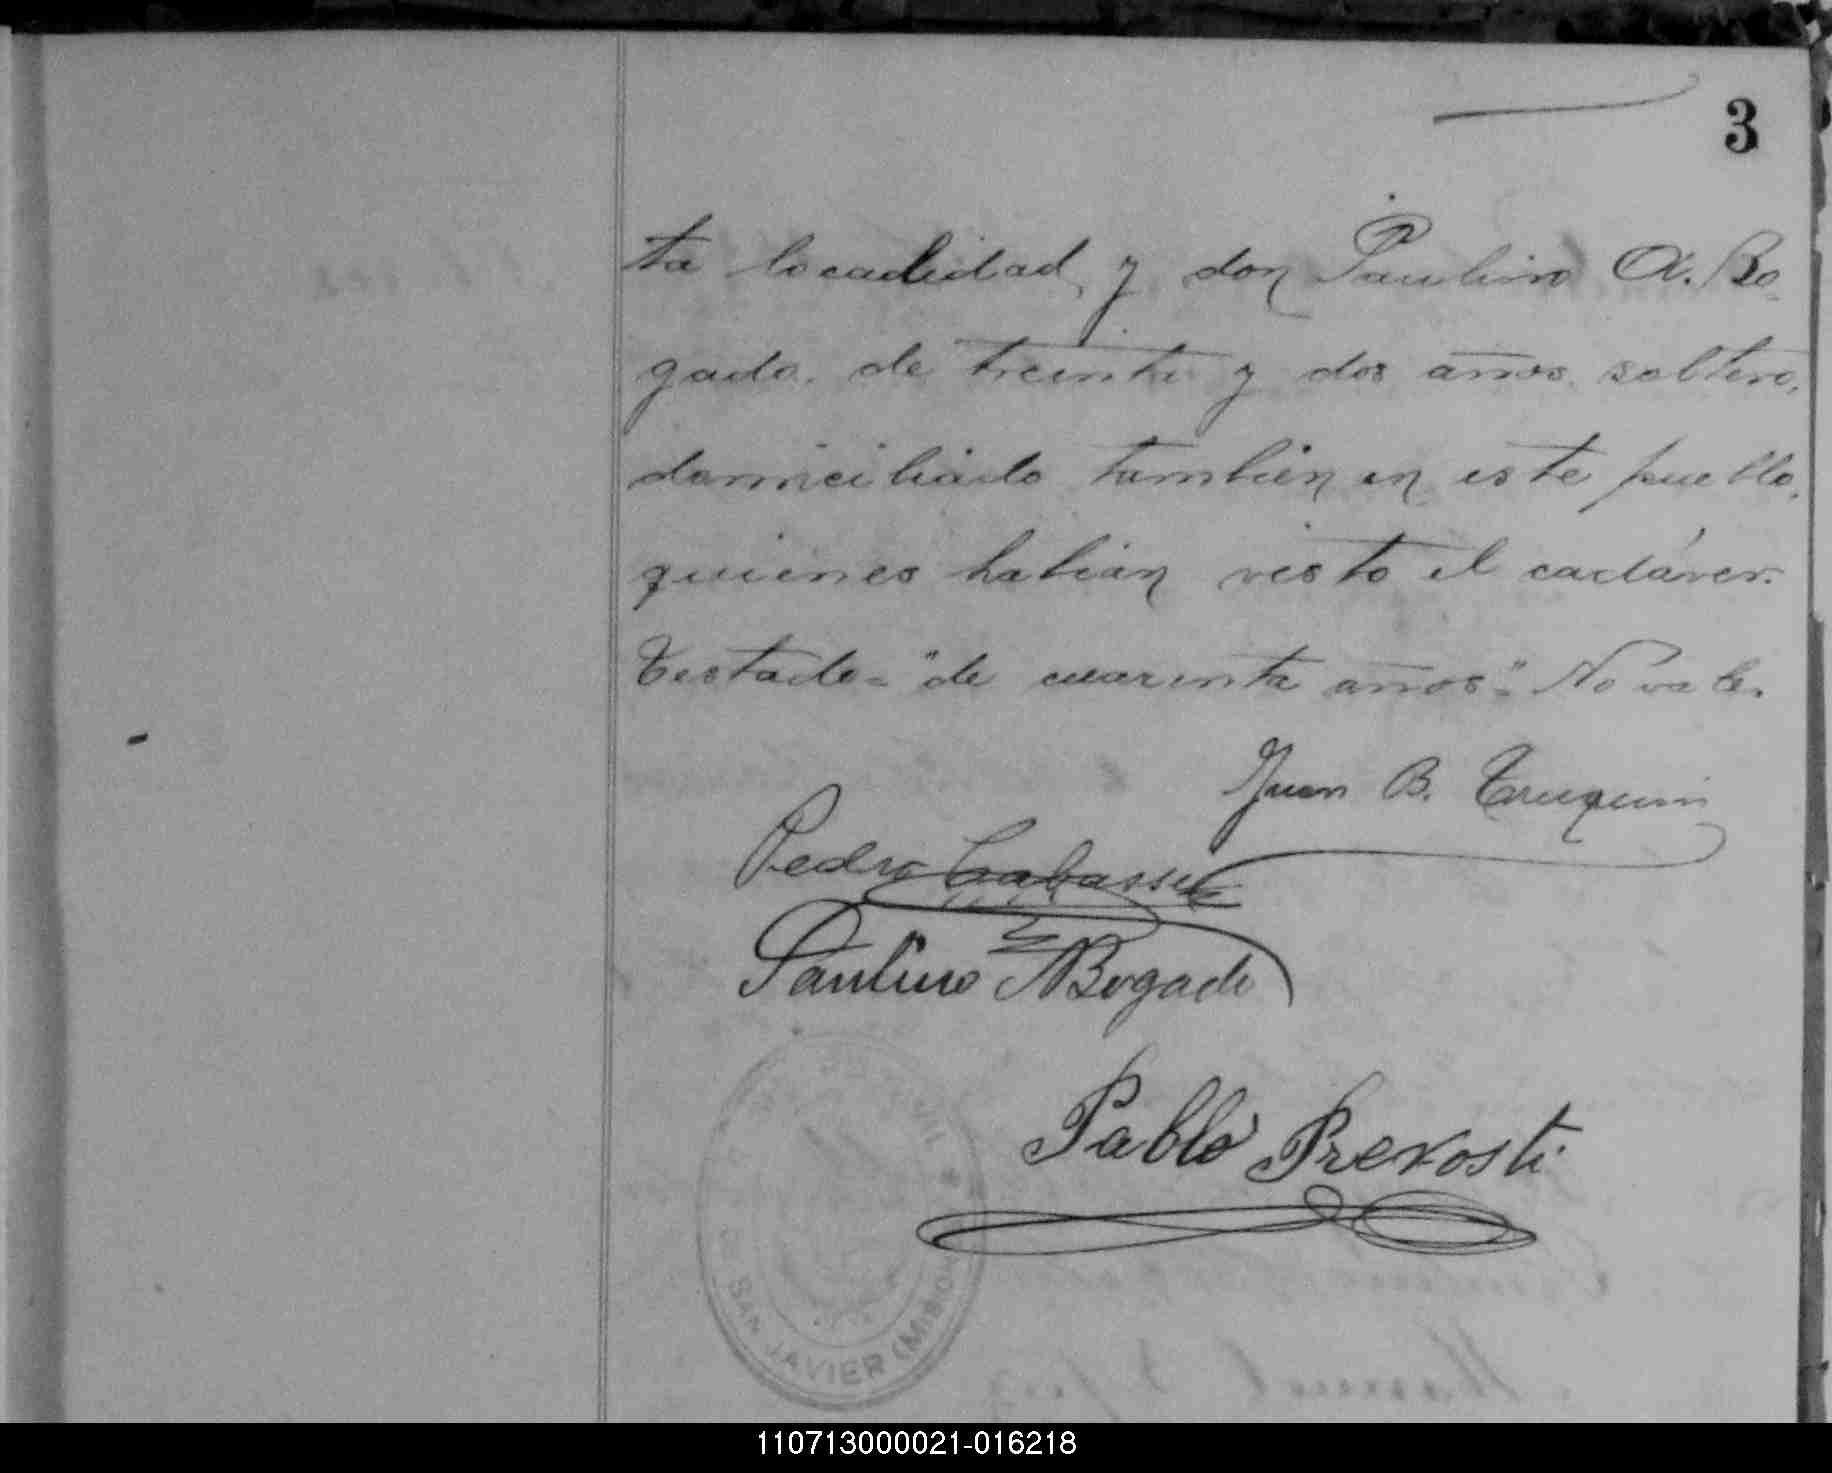 3
ta localidad, y don Paulino A. Bo-
gado, de treinta y dos años, soltero,
domiciliado tambien en este pueblo,
quienes habian visto el cadáver.
Testado="de cuarenta años"= No vale.
Juan B. Truquin
Pedro
Paulino A Bogado
Pablo Prevosti
SAN JAVIER (MISION
110713000021-016218